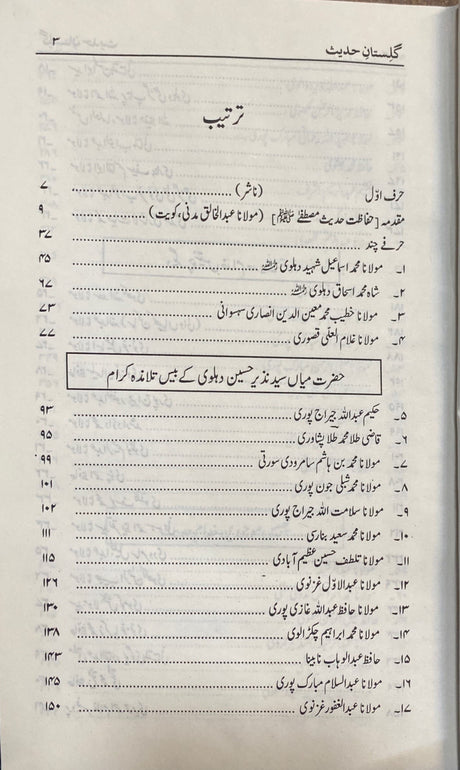 گلستانِ حدیث ۳
ترتیب
حرف اوّل (ناشر) ........ ۷
مقدمہ [حفاظت حدیث مصطفےٰ ﷺ] (مولانا عبدالخالق مدنی، کویت) ........ ۹
حرفے چند ........ ۳۷
۱۔ مولانا محمد اسماعیل شہید دہلوی رحمہ اللہ ........ ۴۵
۲۔ شاہ محمد اسحاق دہلوی رحمہ اللہ ........ ۶۷
۳۔ مولانا خطیب محمد معین الدین انصاری سہسوانی ........ ۷۳
۴۔ مولانا غلام العلی قصوری ........ ۷۷
حضرت میاں سید نذیر حسین دہلوی کے بیس تلامذہ کرام
۵۔ حکیم عبداللہ جیراج پوری ........ ۹۳
۶۔ قاضی طلا محمد طلا پشاوری ........ ۹۵
۷۔ مولانا محمد بن ہاشم سامرودی سورتی ........ ۹۹
۸۔ مولانا محمد شبلی جون پوری ........ ۱۰۱
۹۔ مولانا سلامت اللہ جیراج پوری ........ ۱۰۲
۱۰۔ مولانا محمد سعید بنارسی ........ ۱۱۱
۱۱۔ مولانا تلطف حسین عظیم آبادی ........ ۱۱۵
۱۲۔ مولانا عبدالاوّل غزنوی ........ ۱۲۶
۱۳۔ مولانا حافظ عبداللہ غازی پوری ........ ۱۳۰
۱۴۔ مولانا محمد ابراہیم چکڑالوی ........ ۱۳۸
۱۵۔ حافظ عبدالوہاب نابینا ........ ۱۴۳
۱۶۔ مولانا عبدالسلام مبارک پوری ........ ۱۴۵
۱۷۔ مولانا عبدالغفور غزنوی ........ ۱۵۰